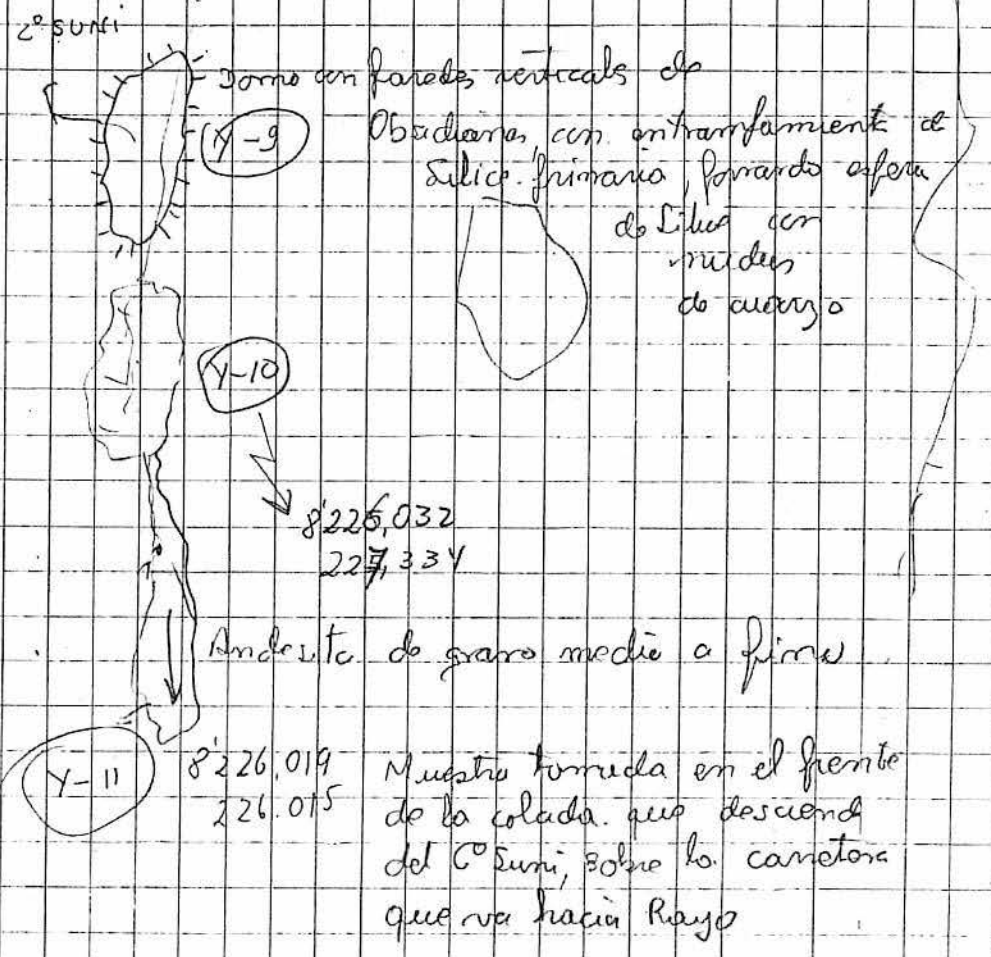 Cº SUNI
Domo con paredes verticals de
Y-9
Obsidiana, con entrampamiento de
Silice primaria, formando esfera
de Silice con
nucleos
de cuarzo
Y-10
8'226,032
227,334
Andesita de grano medio a fino
Y-11
8'226,019
226.015
Muestra tomada en el frente
de la colada que desciend
del Cº Suni, sobre la carretera
que va hacia Rayo